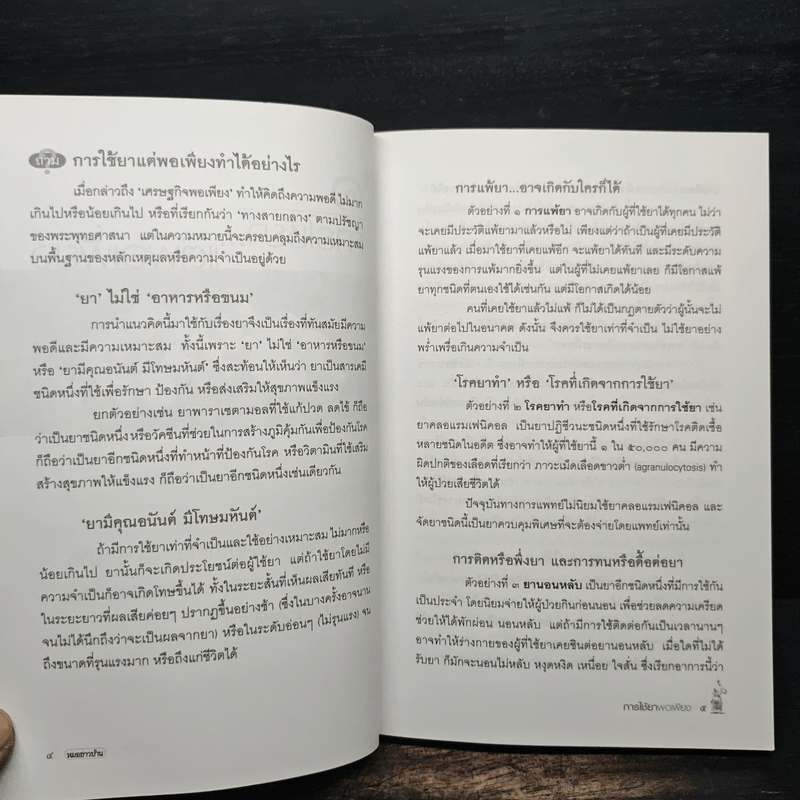 ถาม การใช้ยาแต่พอเพียงทำได้อย่างไร
เมื่อกล่าวถึง ‘เศรษฐกิจพอเพียง’ ทำให้คิดถึงความพอดี ไม่มาก
เกินไปหรือน้อยเกินไป หรือที่เรียกกันว่า ‘ทางสายกลาง’ ตามปรัชญา
ของพระพุทธศาสนา แต่ในความหมายนี้จะครอบคลุมถึงความเหมาะสม
บนพื้นฐานของหลักเหตุผลหรือความจำเป็นอยู่ด้วย
‘ยา’ ไม่ใช่ ‘อาหารหรือขนม’
การนำแนวคิดนี้มาใช้กับเรื่องยาจึงเป็นเรื่องที่ทันสมัยมีความ
พอดีและมีความเหมาะสม ทั้งนี้เพราะ ‘ยา’ ไม่ใช่ ‘อาหารหรือขนม’
หรือ ‘ยามีคุณอนันต์ มีโทษมหันต์’ ซึ่งสะท้อนให้เห็นว่า ยาเป็นสารเคมี
ชนิดหนึ่งที่ใช้เพื่อรักษา ป้องกัน หรือส่งเสริมให้สุขภาพแข็งแรง
ยกตัวอย่างเช่น ยาพาราเซตามอลที่ใช้แก้ปวด ลดไข้ ก็ถือ
ว่าเป็นยาชนิดหนึ่ง หรือวัคซีนที่ช่วยในการสร้างภูมิคุ้มกันเพื่อป้องกันโรค
ก็ถือว่าเป็นยาอีกชนิดหนึ่งที่ทำหน้าที่ป้องกันโรค หรือวิตามินที่ใช้เสริม
สร้างสุขภาพให้แข็งแรง ก็ถือว่าเป็นยาอีกชนิดหนึ่งเช่นเดียวกัน
‘ยามีคุณอนันต์ มีโทษมหันต์’
ถ้ามีการใช้ยาเท่าที่จำเป็นและใช้อย่างเหมาะสม ไม่มากหรือ
น้อยเกินไป ยานั้นก็จะเกิดประโยชน์ต่อผู้ใช้ยา แต่ถ้าใช้ยาโดยไม่มี
ความจำเป็นก็อาจเกิดโทษขึ้นได้ ทั้งในระยะสั้นที่เห็นผลเสียทันที หรือ
ในระยะยาวที่ผลเสียค่อยๆ ปรากฏขึ้นอย่างช้า (ซึ่งในบางครั้งอาจนาน
จนไม่ได้นึกถึงว่าจะเป็นผลจากยา) หรือในระดับอ่อนๆ (ไม่รุนแรง) จน
ถึงขนาดที่รุนแรงมาก หรือถึงแก่ชีวิตได้
๔ หมอชาวบ้าน
การแพ้ยา...อาจเกิดกับใครก็ได้
ตัวอย่างที่ ๑ การแพ้ยา อาจเกิดกับผู้ที่ใช้ยาได้ทุกคน ไม่ว่า
จะเคยมีประวัติแพ้ยามาแล้วหรือไม่ เพียงแต่ว่าถ้าเป็นผู้ที่เคยมีประวัติ
แพ้ยาแล้ว เมื่อมาใช้ยาที่เคยแพ้อีก จะแพ้ได้ทันที และมีระดับความ
รุนแรงของการแพ้มากยิ่งขึ้น แต่ในผู้ที่ไม่เคยแพ้ยาเลย ก็มีโอกาสแพ้
ยาทุกชนิดที่ตนเองใช้ได้เช่นกัน แต่มีโอกาสเกิดได้น้อย
คนที่เคยใช้ยาแล้วไม่แพ้ ก็ไม่ได้เป็นกฎตายตัวว่าผู้นั้นจะไม่
แพ้ยาต่อไปในอนาคต ดังนั้น จึงควรใช้ยาเท่าที่จำเป็น ไม่ใช้ยาอย่าง
พร่ำเพรื่อเกินความจำเป็น
‘โรคยาทำ’ หรือ ‘โรคที่เกิดจากการใช้ยา’
ตัวอย่างที่ ๒ โรคยาทำ หรือโรคที่เกิดจากการใช้ยา เช่น
ยาคลอแรมเฟนิคอล เป็นยาปฏิชีวนะชนิดหนึ่งที่ใช้รักษาโรคติดเชื้อ
หลายชนิดในอดีต ซึ่งอาจทำให้ผู้ที่ใช้ยานี้ ๑ ใน ๕๐,๐๐๐ คน มีความ
ผิดปกติของเลือดที่เรียกว่า ภาวะเม็ดเลือดขาวต่ำ (agranulocytosis) ทำ
ให้ผู้ป่วยเสียชีวิตได้
ปัจจุบันทางการแพทย์ไม่นิยมใช้ยาคลอแรมเฟนิคอล และ
จัดยาชนิดนี้เป็นยาควบคุมพิเศษที่จะต้องจ่ายโดยแพทย์เท่านั้น
การติดหรือพึ่งยา และการทนหรือดื้อต่อยา
ตัวอย่างที่ ๓ ยานอนหลับ เป็นยาอีกชนิดหนึ่งที่มีการใช้กัน
เป็นประจำ โดยนิยมจ่ายให้ผู้ป่วยกินก่อนนอน เพื่อช่วยลดความเครียด
ช่วยให้ได้พักผ่อน นอนหลับ แต่ถ้ามีการใช้ติดต่อกันเป็นเวลานานๆ
อาจทำให้ร่างกายของผู้ที่ใช้ยาเคยชินต่อยานอนหลับ เมื่อใดที่ไม่ได้
รับยา ก็มักจะนอนไม่หลับ หงุดหงิด เหนื่อย ใจสั่น ซึ่งเรียกอาการนี้ว่า
การใช้ยาพอเพียง ๕